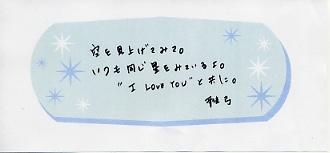 空を見上げてみて。
いつも同じ星をみているよ。
"I LOVE YOU"と共に。
雅弓